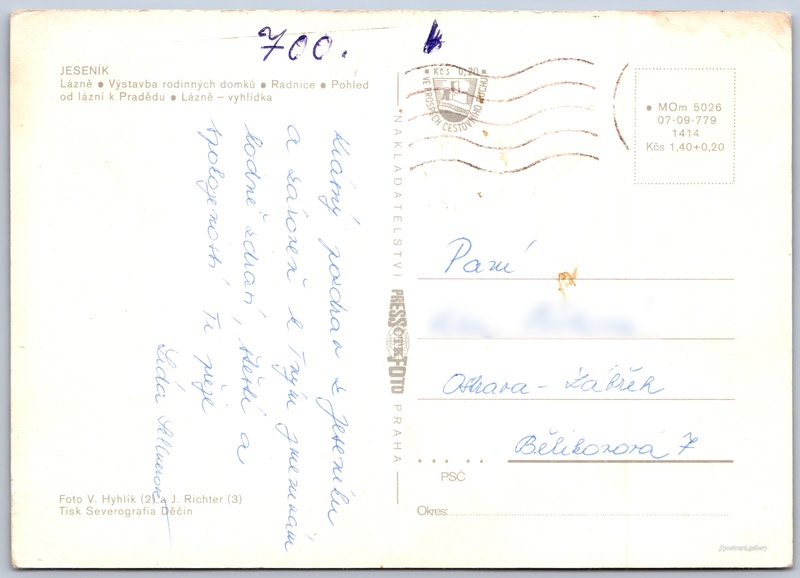 700.
JESENÍK
Lázně ● Výstavba rodinných domků ● Radnice ● Pohled
od lázní k Pradědu ● Lázně – vyhlídka
Krásný pozdrav z Jeseníku
a zároveň k Tvým jmeninám
hodně zdraví, štěstí a
spokojenosti Ti přeje
Lída
Foto V. Hyhlík (2) a J. Richter (3)
Tisk Severografia Děčín
NAKLADATELSTVÍ
PRESSFOTO
ČTK
PRAHA
Kčs 0,20
VE PROSPĚCH CESTOVNÍHO RUCHU
● MOm 5026
07-09-779
1414
Kčs 1,40+0,20
Paní
Ostrava - Zábřeh
Bělikovova 7
PSČ
Okres: